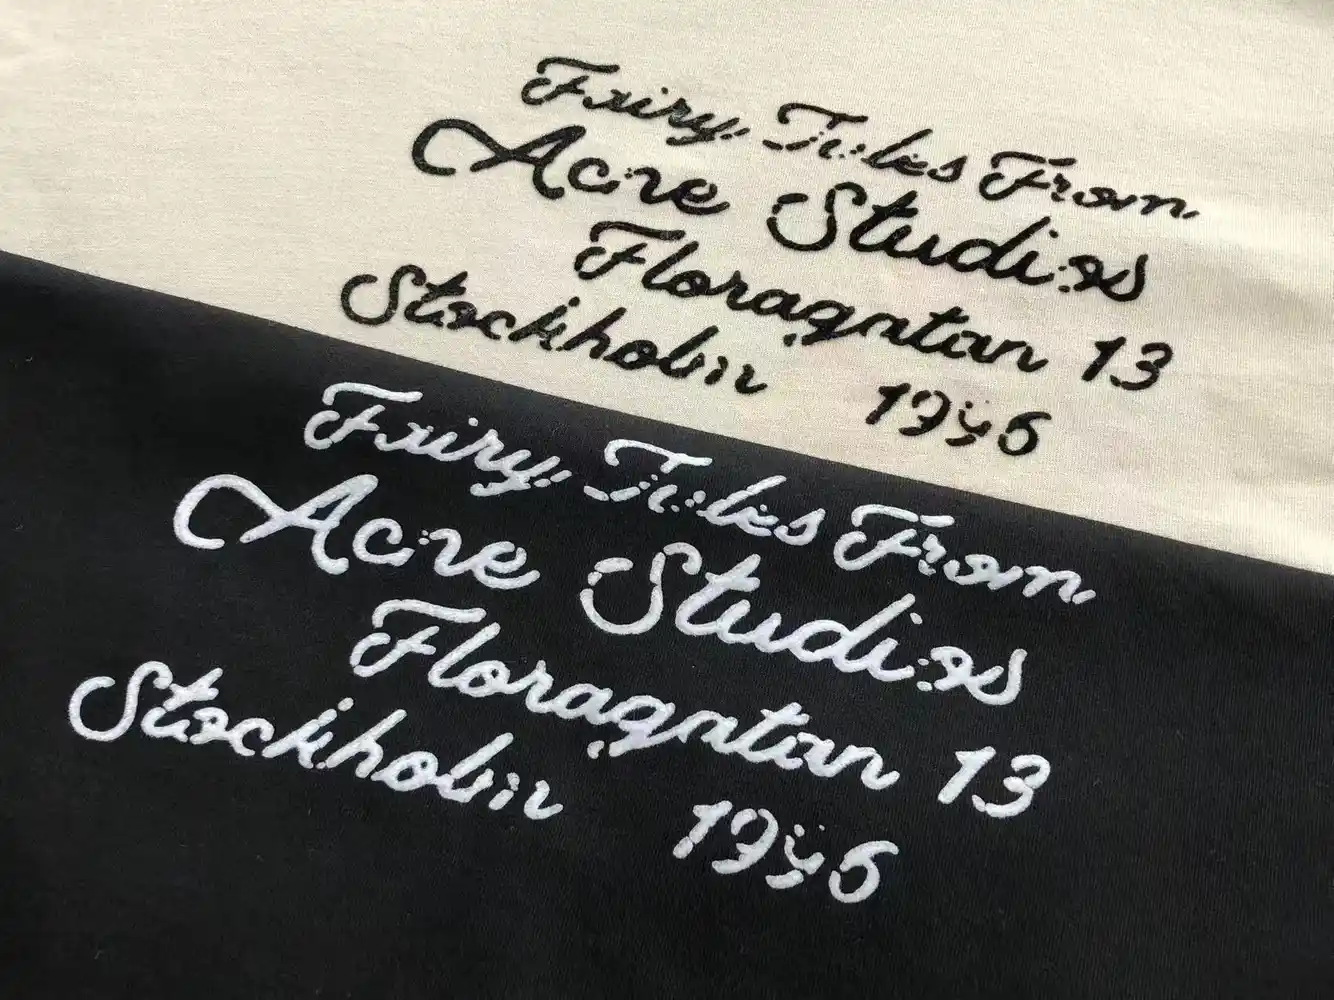 Fairy Tales From
Acne Studios
Floragatan 13
Stockholm 1996
Fairy Tales From
Acne Studios
Floragatan 13
Stockholm 1996